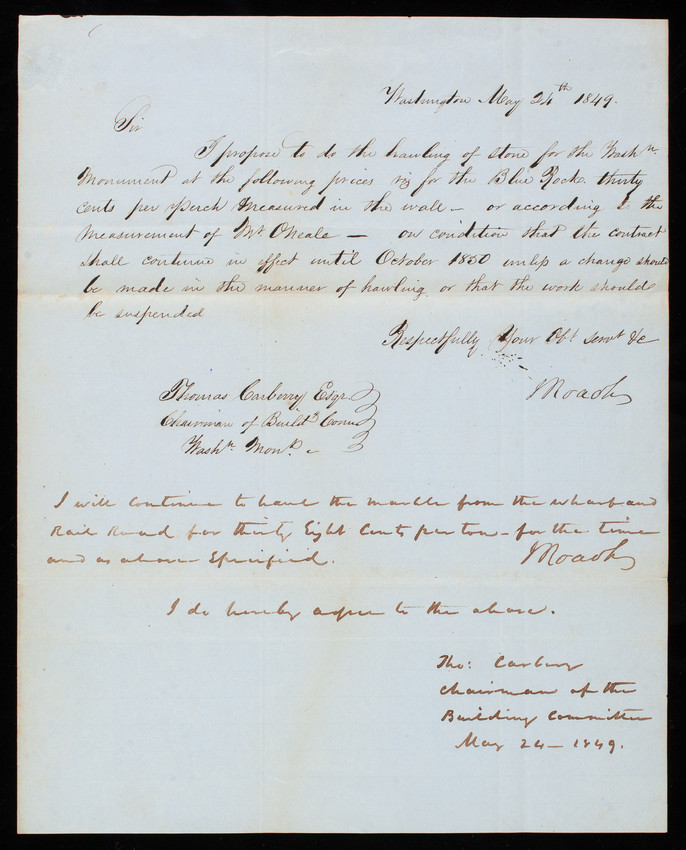 Washington May 24th 1849.
Sir
I propose to do the hawling of stone for the Washn.
Monument at the following prices viz for the Blue Rock thirty
cents per perch measured in the wall – or according to the
measurement of Mr. O'Neale – on condition that the contract
shall continue in effect until October 1850 unless a change should
be made in the manner of hawling or that the work should
be suspended
Respectfully Your Obt. servt &c
Thomas Carberry Esqr.
Chairman of Buildg Comee
Washn. Mont.
I will continue to haul the marble from the wharf and
Rail Road for thirty Eight Cents per ton – for the time
and as above Specified.
I do hereby agree to the above.
Tho: Carbery
Chairman of the
Building Committee
May 24 – 1849.